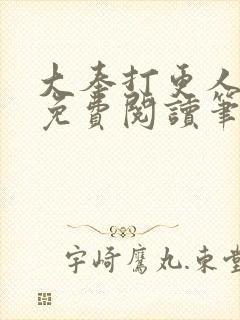 大奉打更人
免費閱讀筆
宇崎鷹丸.東堂